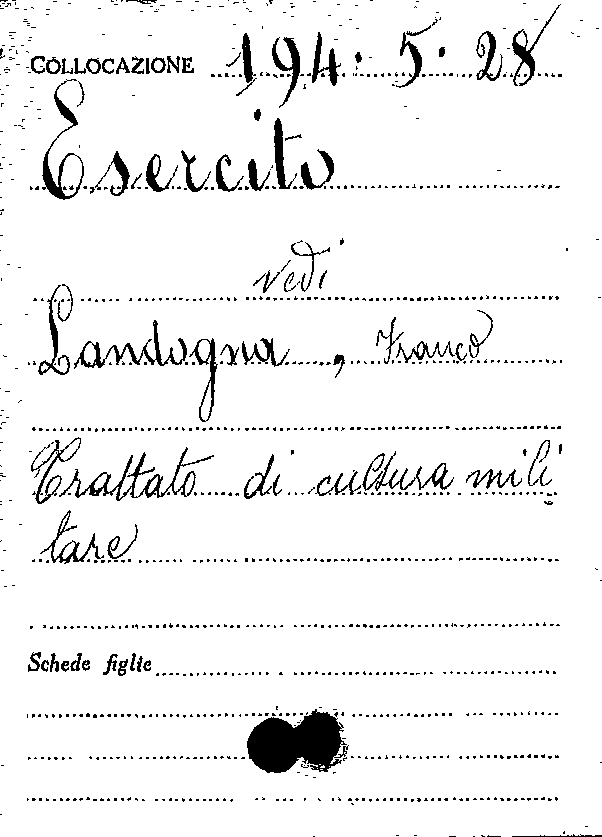 COLLOCAZIONE 194. 5. 28
Esercito
vedi
Landogna, Franco
Trattato di cultura mili
tare
Schede figlie